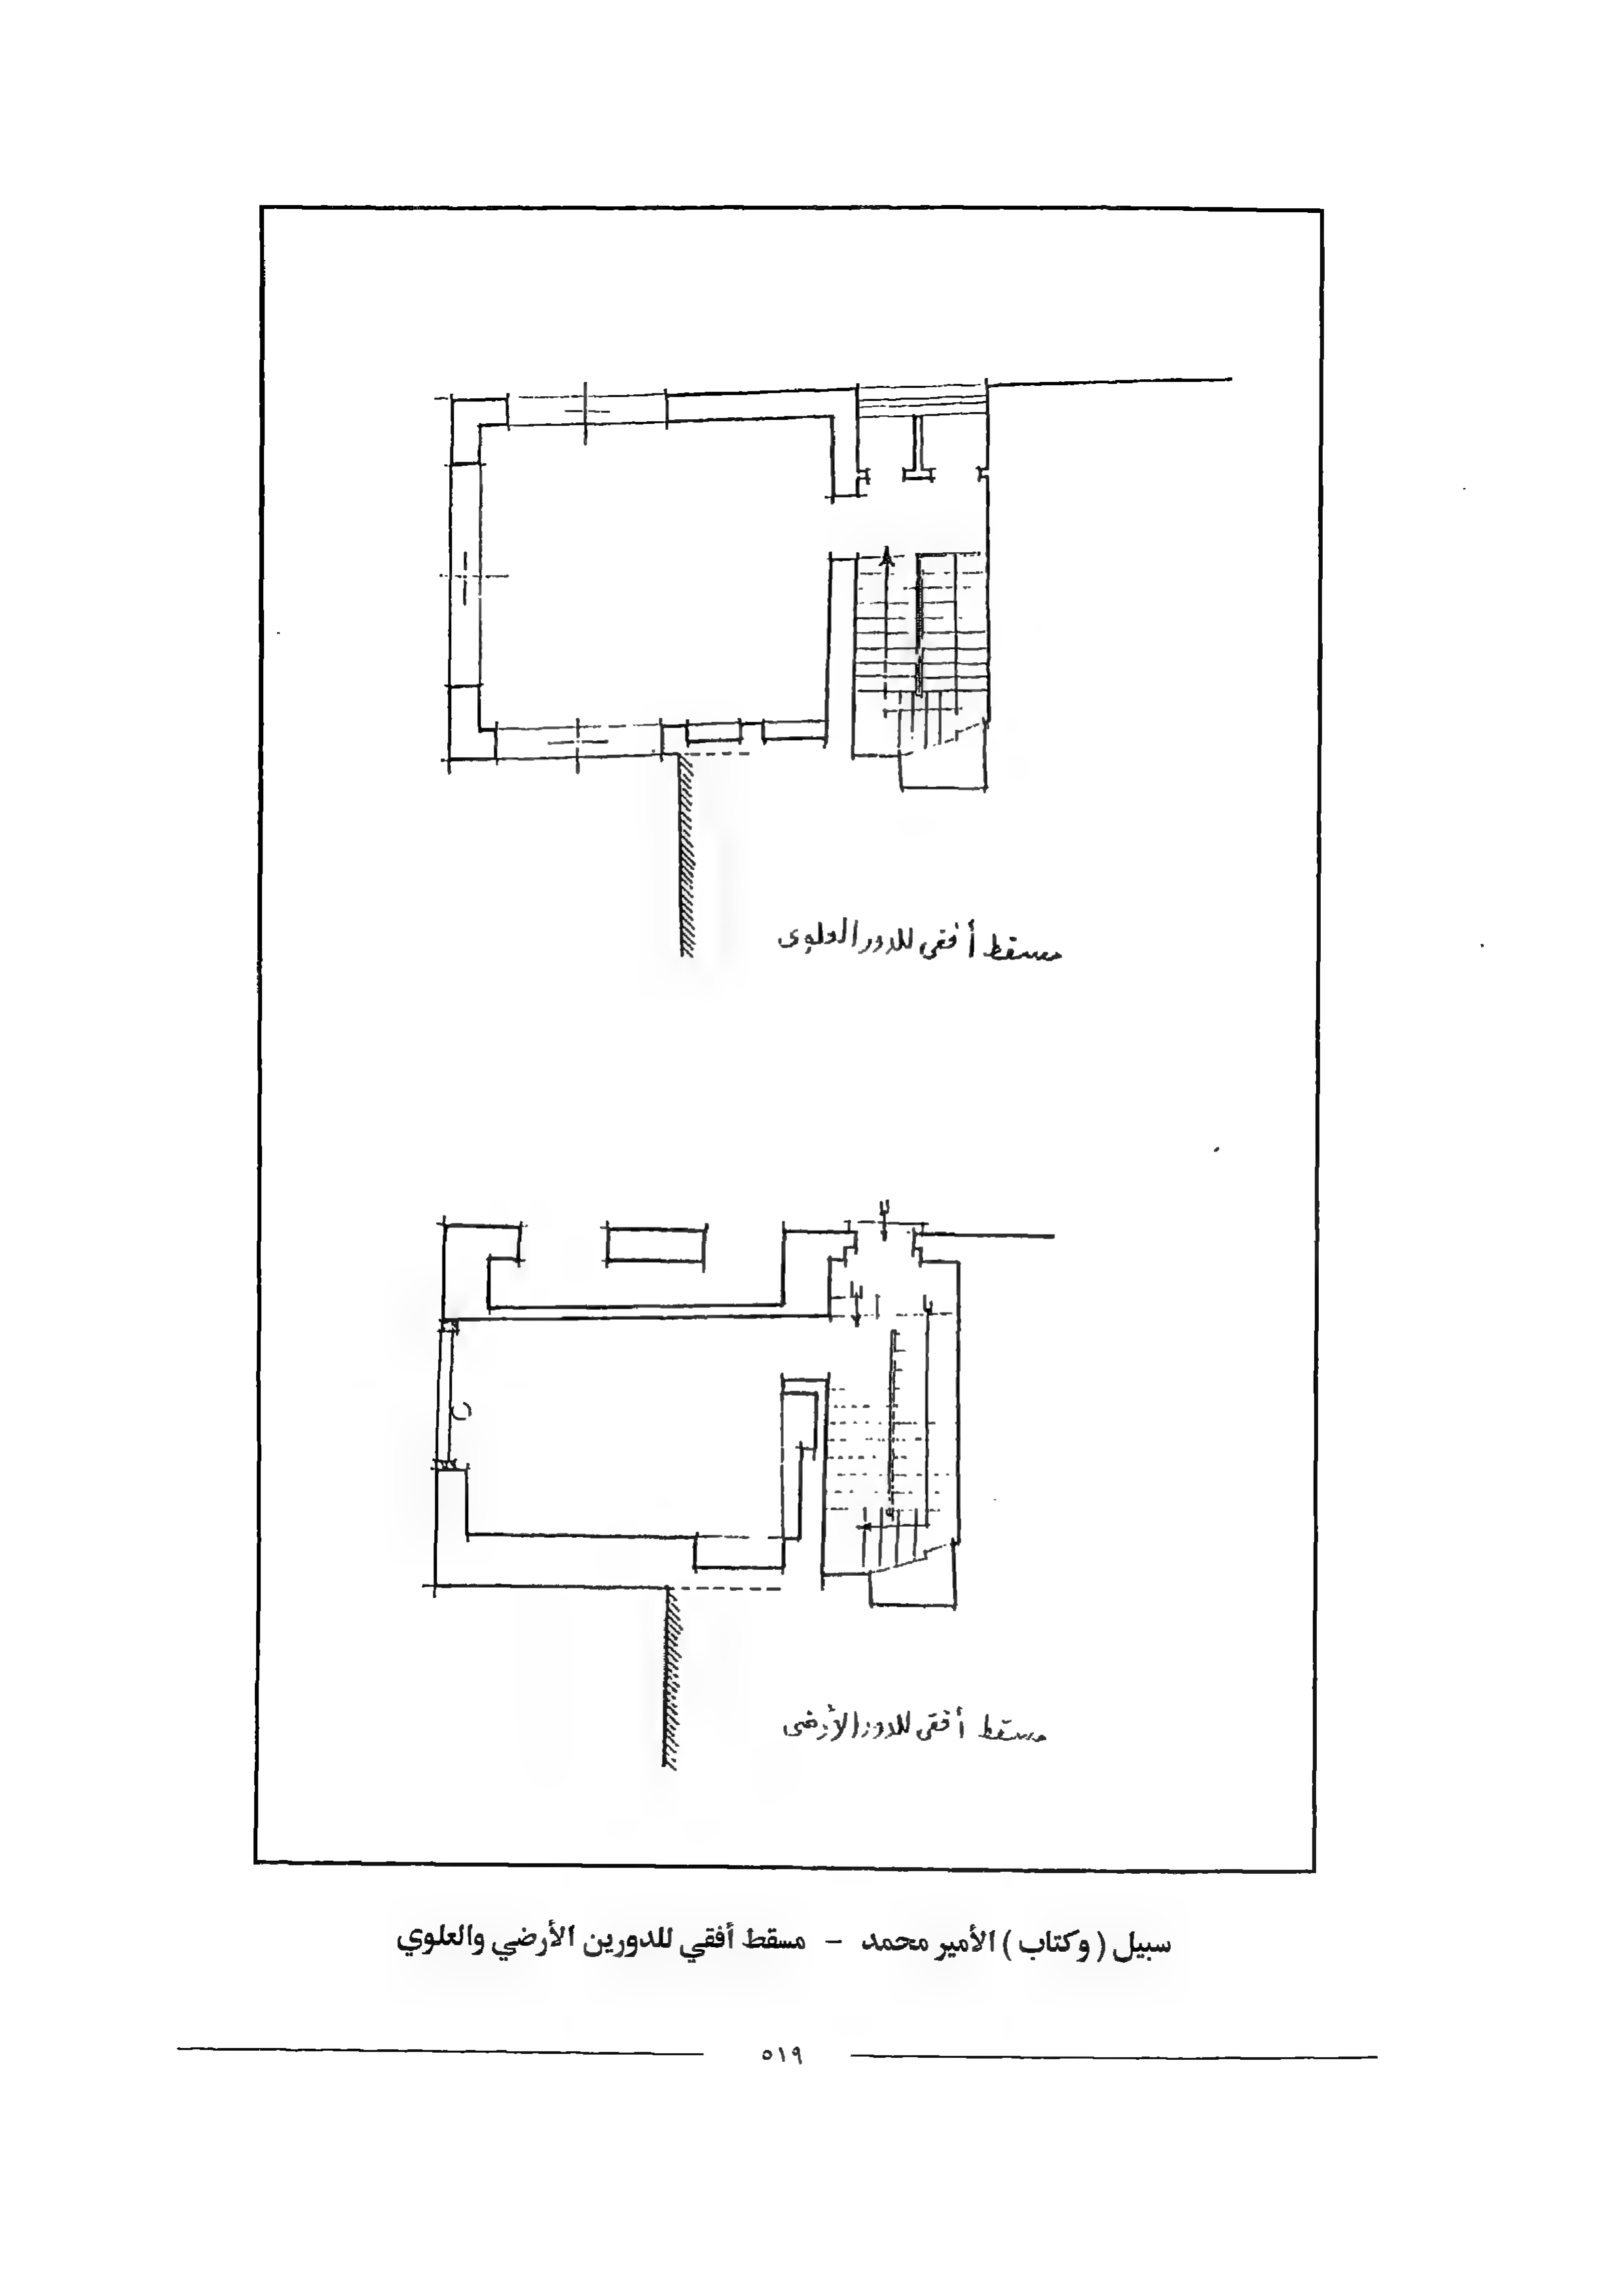 مسقط أفقى للدور العلوى
مسقط أفقى للدور الأرضى
سبيل ( وكتاب ) الأمير محمد – مسقط أفقي للدورين الأرضي والعلوي
٥١٩